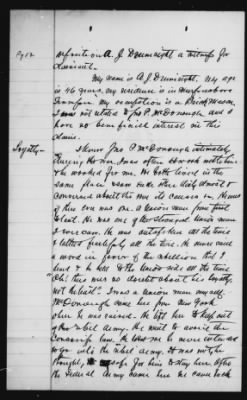 Pg 12
Deposition A. J. Drumright a witness for
Claimant.
My name is A. J. Drumright. My age
is 46 years, my residence is in Murfreesboro
Tennessee. My occupation is a Brick Mason,
I am not related to Jas P. McDonough, and I
have no beneficial interest in this
claim.
Loyalty—
I knew Jas P. McDonough intimately
during the war. I was often
he worked for me. We both lived in the
same place & saw each other daily almost &
conversed about the war, its causes &c.
of this war was one a Union man from first
to last. He was one of the strongest Union men
I ever saw. He was outspoken all the time
& talked all the time. He never said
a word in favor of the rebellion that I
heard & he held to the Union side all the time
Oh! there was no doubt about his loyalty,
not the least. I was a Union man myself.
McDonough came here from New York
where he was raised. He left to keep out
of the rebel army. He went to avoid the
Conscript law. He told me he never intended
to go into the rebel army. It was not, he
thought, safe for him to stay here. After
the Federal Army came here he came back